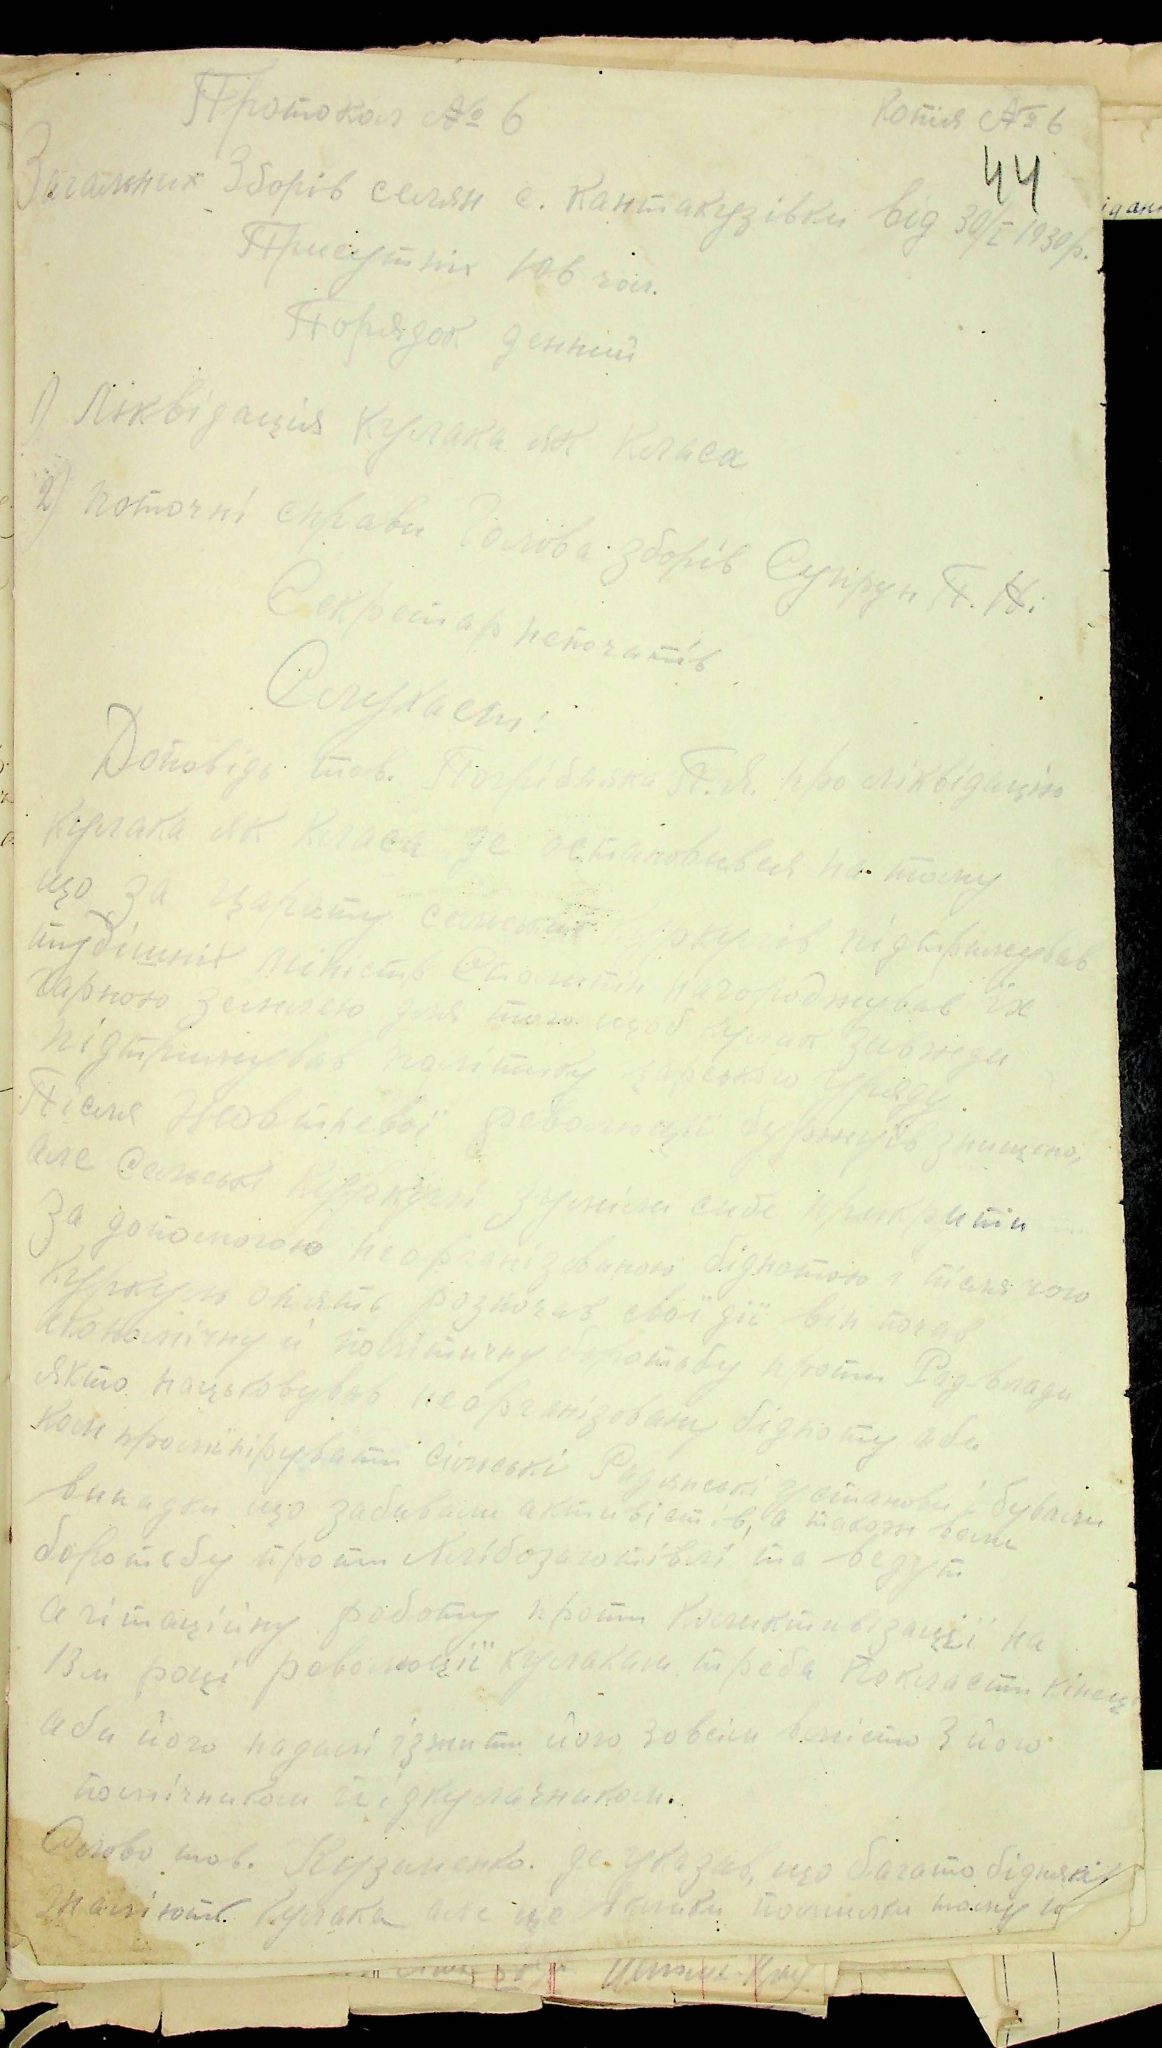 Протокол № 6
Копія № 6
44
Загальних Зборів селян с. Кантакузівки від 30/I 1930р.
Присутніх 106 чол.
Порядок денний
1) Ліквідація кулака як класа
2) поточні справи Голова зборів Супрун П. Н.
Секретар Непочатів
Слухали:
Доповідь тов. Погрібняка П.Я. про ліквідацію
кулака як класа де остановився на тому
що за царату сельських куркулів підтримував
тудішній міністр Столипін нагороджував їх
гарною землею для того щоб кулак завжди
підтримував політику царського уряду
Після Жовтневої революції буржуїв знищено,
але сельські куркулі зуміли себе прикрити
за допомогою неорганізованою біднотою і після чого
куркуль опять розпочав свої дії він почав
економічну й політичну боротьбу проти Рад-влади
якто нацьковував неорганізовану бідноту аби
компромініруваті сільські Радянські установи і бували
випадки що забивали активістів, а також вели
боротьбу проти хлібозаготівлі та ведут
агітаційну роботу проти колективізації на
13м році революції кулакам треба покласти кінець
аби його надалі ізжити його зовсім вмісто з його
помічником підкулачником.
Слово тов. Кузименко. де указав, що багато бідняків
жаліють кулака але це помилки тому